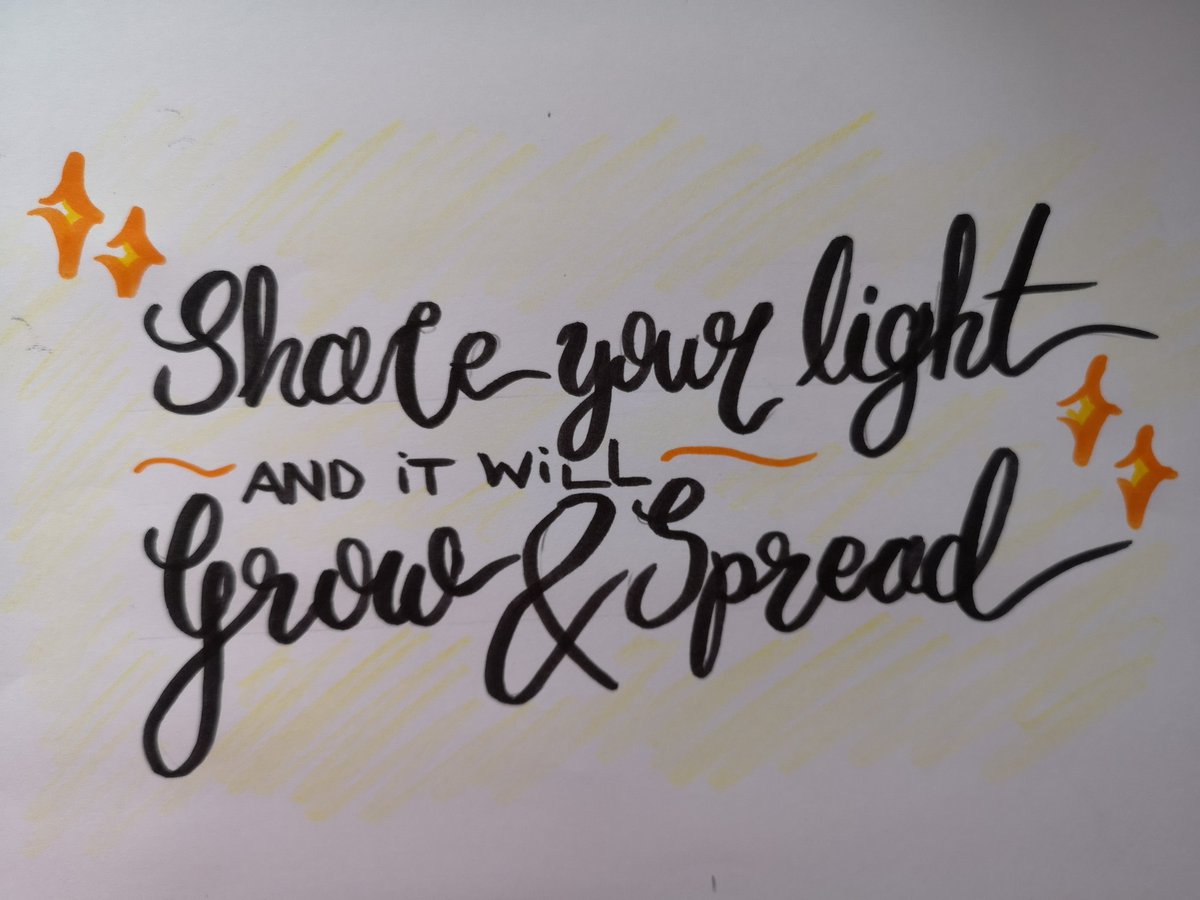 Share your light
AND iT WiLL
Grow & Spread